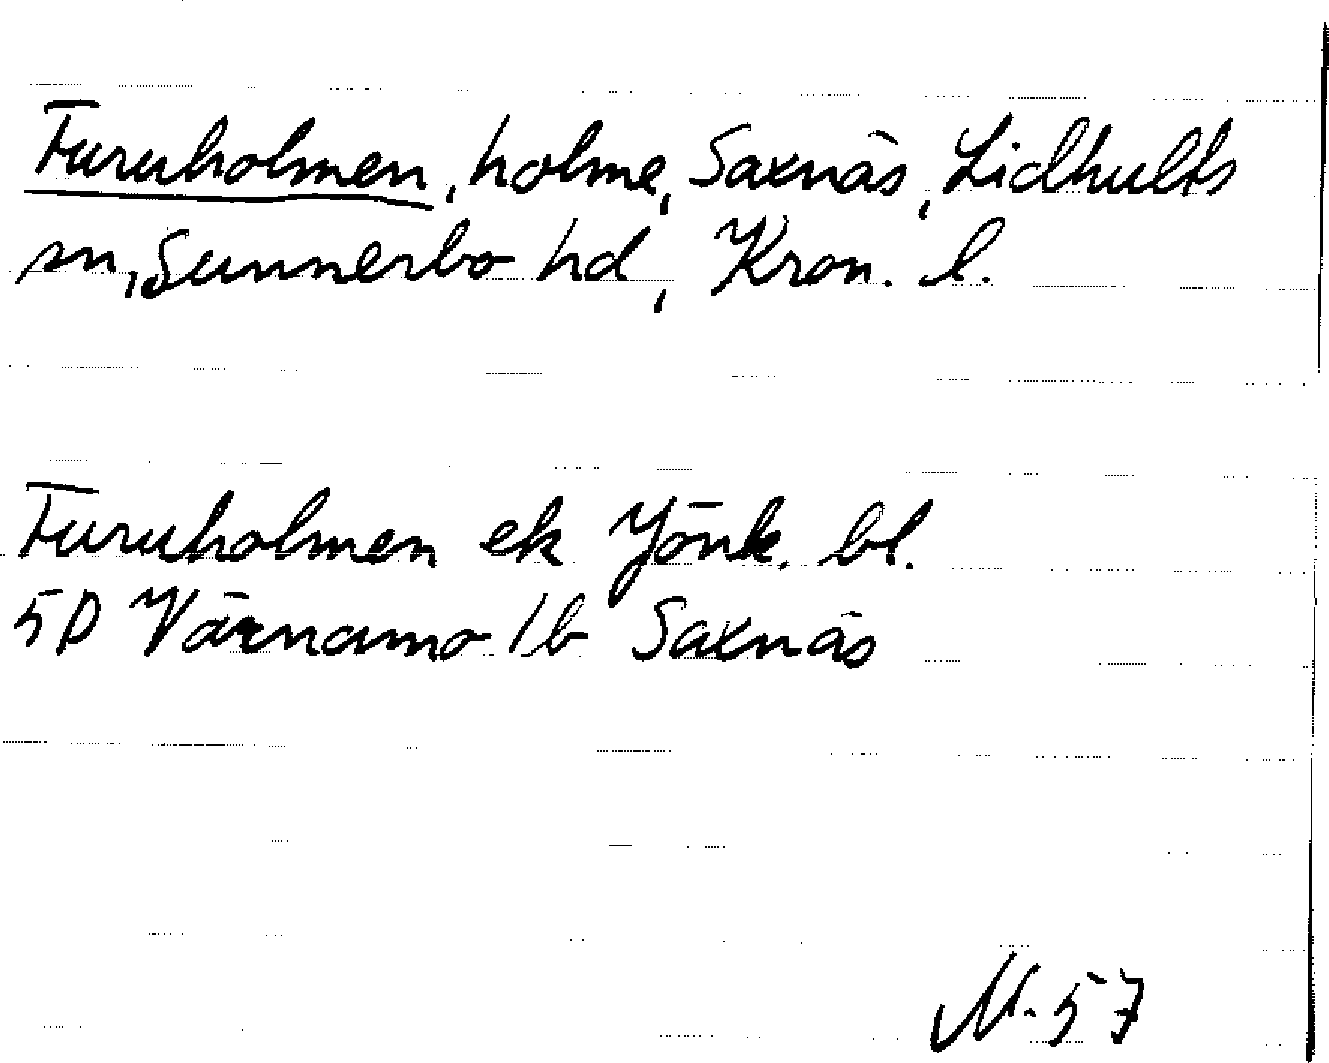 Furuholmen, holme, Saxnäs, Lidhults
sn, Sunnerbo hd, Kron. l.
Furuholmen ek Jönk. bl.
5D Värnamo 1b Saxnäs
M-57